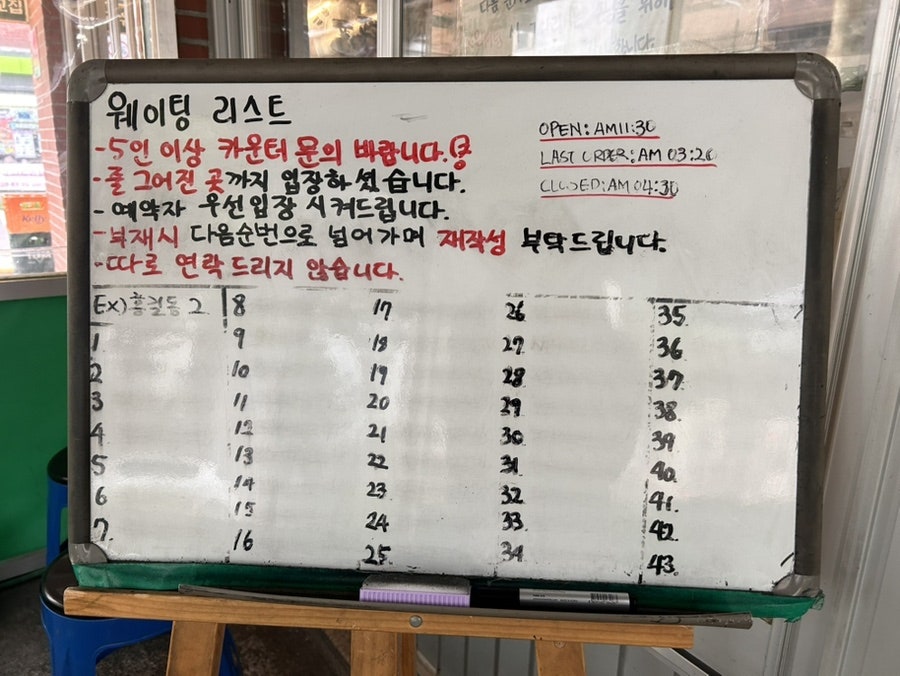 웨이팅 리스트
-5인 이상 카운터 문의 바랍니다.
-줄 그어진 곳까지 입장하셨습니다.
-예약자 우선입장 시켜드립니다.
-부재시 다음순번으로 넘어가며 재작성 부탁드립니다.
-따로 연락드리지 않습니다.
OPEN: AM11:30
LAST ORDER: AM 03:20
CLOSED: AM 04:30
Ex) 홍길동 2
1
2
3
4
5
6
7.
8
9
10
11
12
13
14
15
16
17
18
19
20
21
22
23
24
25.
26
27.
28
29
30
31.
32
33.
34
35
36
37.
38.
39
40.
41.
42.
43.